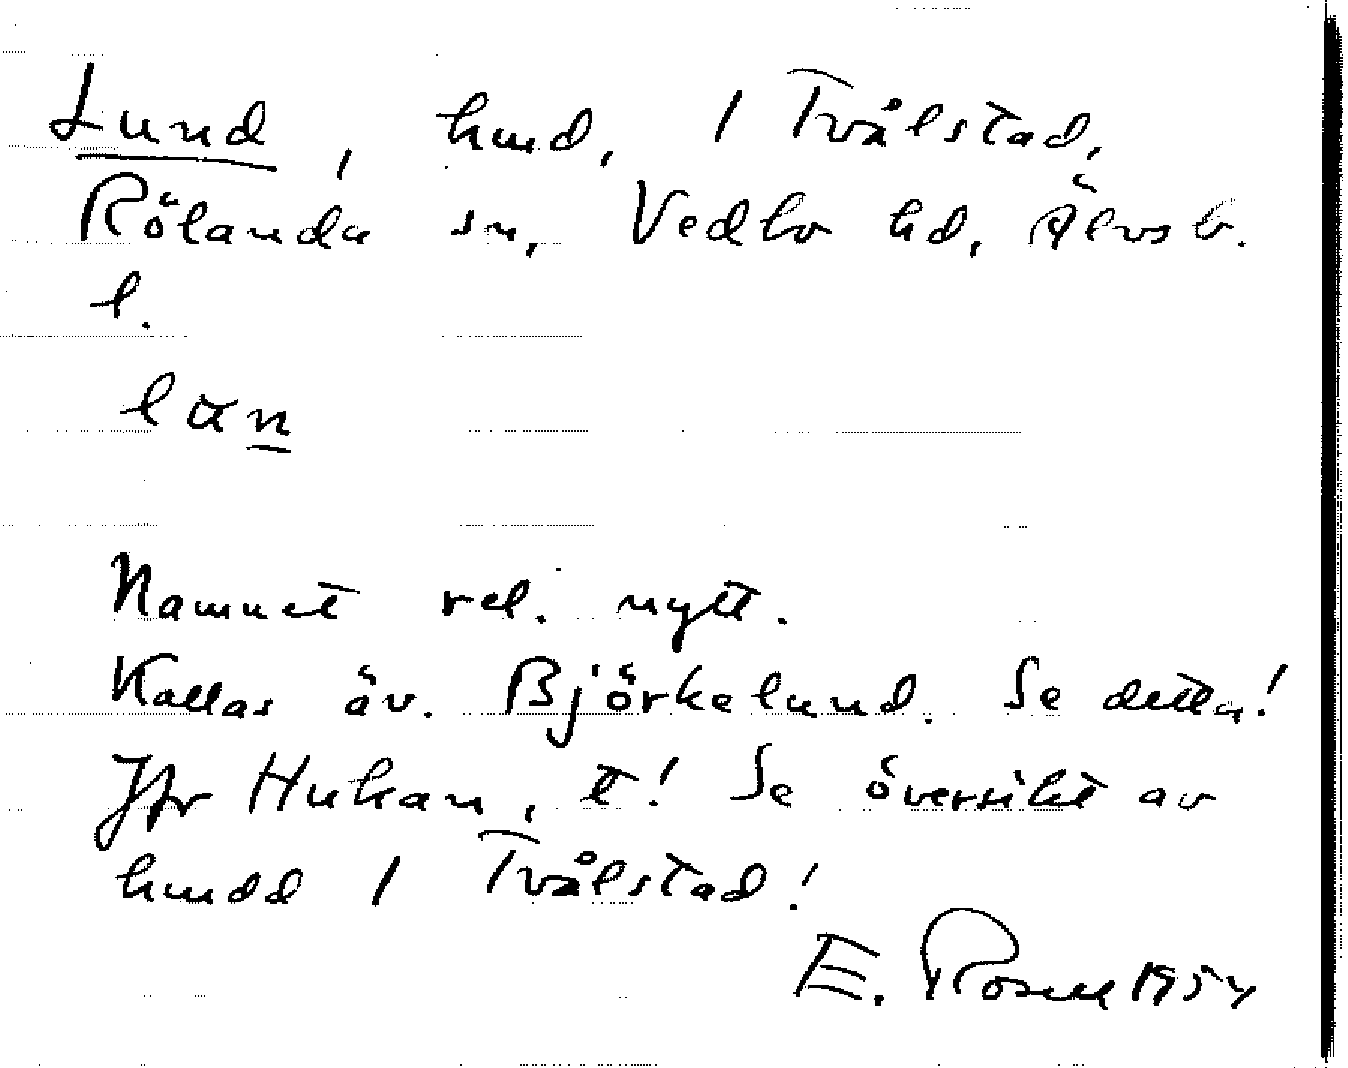 Lund, hmd, 1 Tvålstad,
Rölanda sn, Vedbo hd, Älvsb.
l.
lun
Namnet rel. nytt.
Kallas äv. Björkelund. Se detta!
Jfr Hukan, t! Se översikt av
hmdd 1 Tvålstad!
E. Rosell 1954